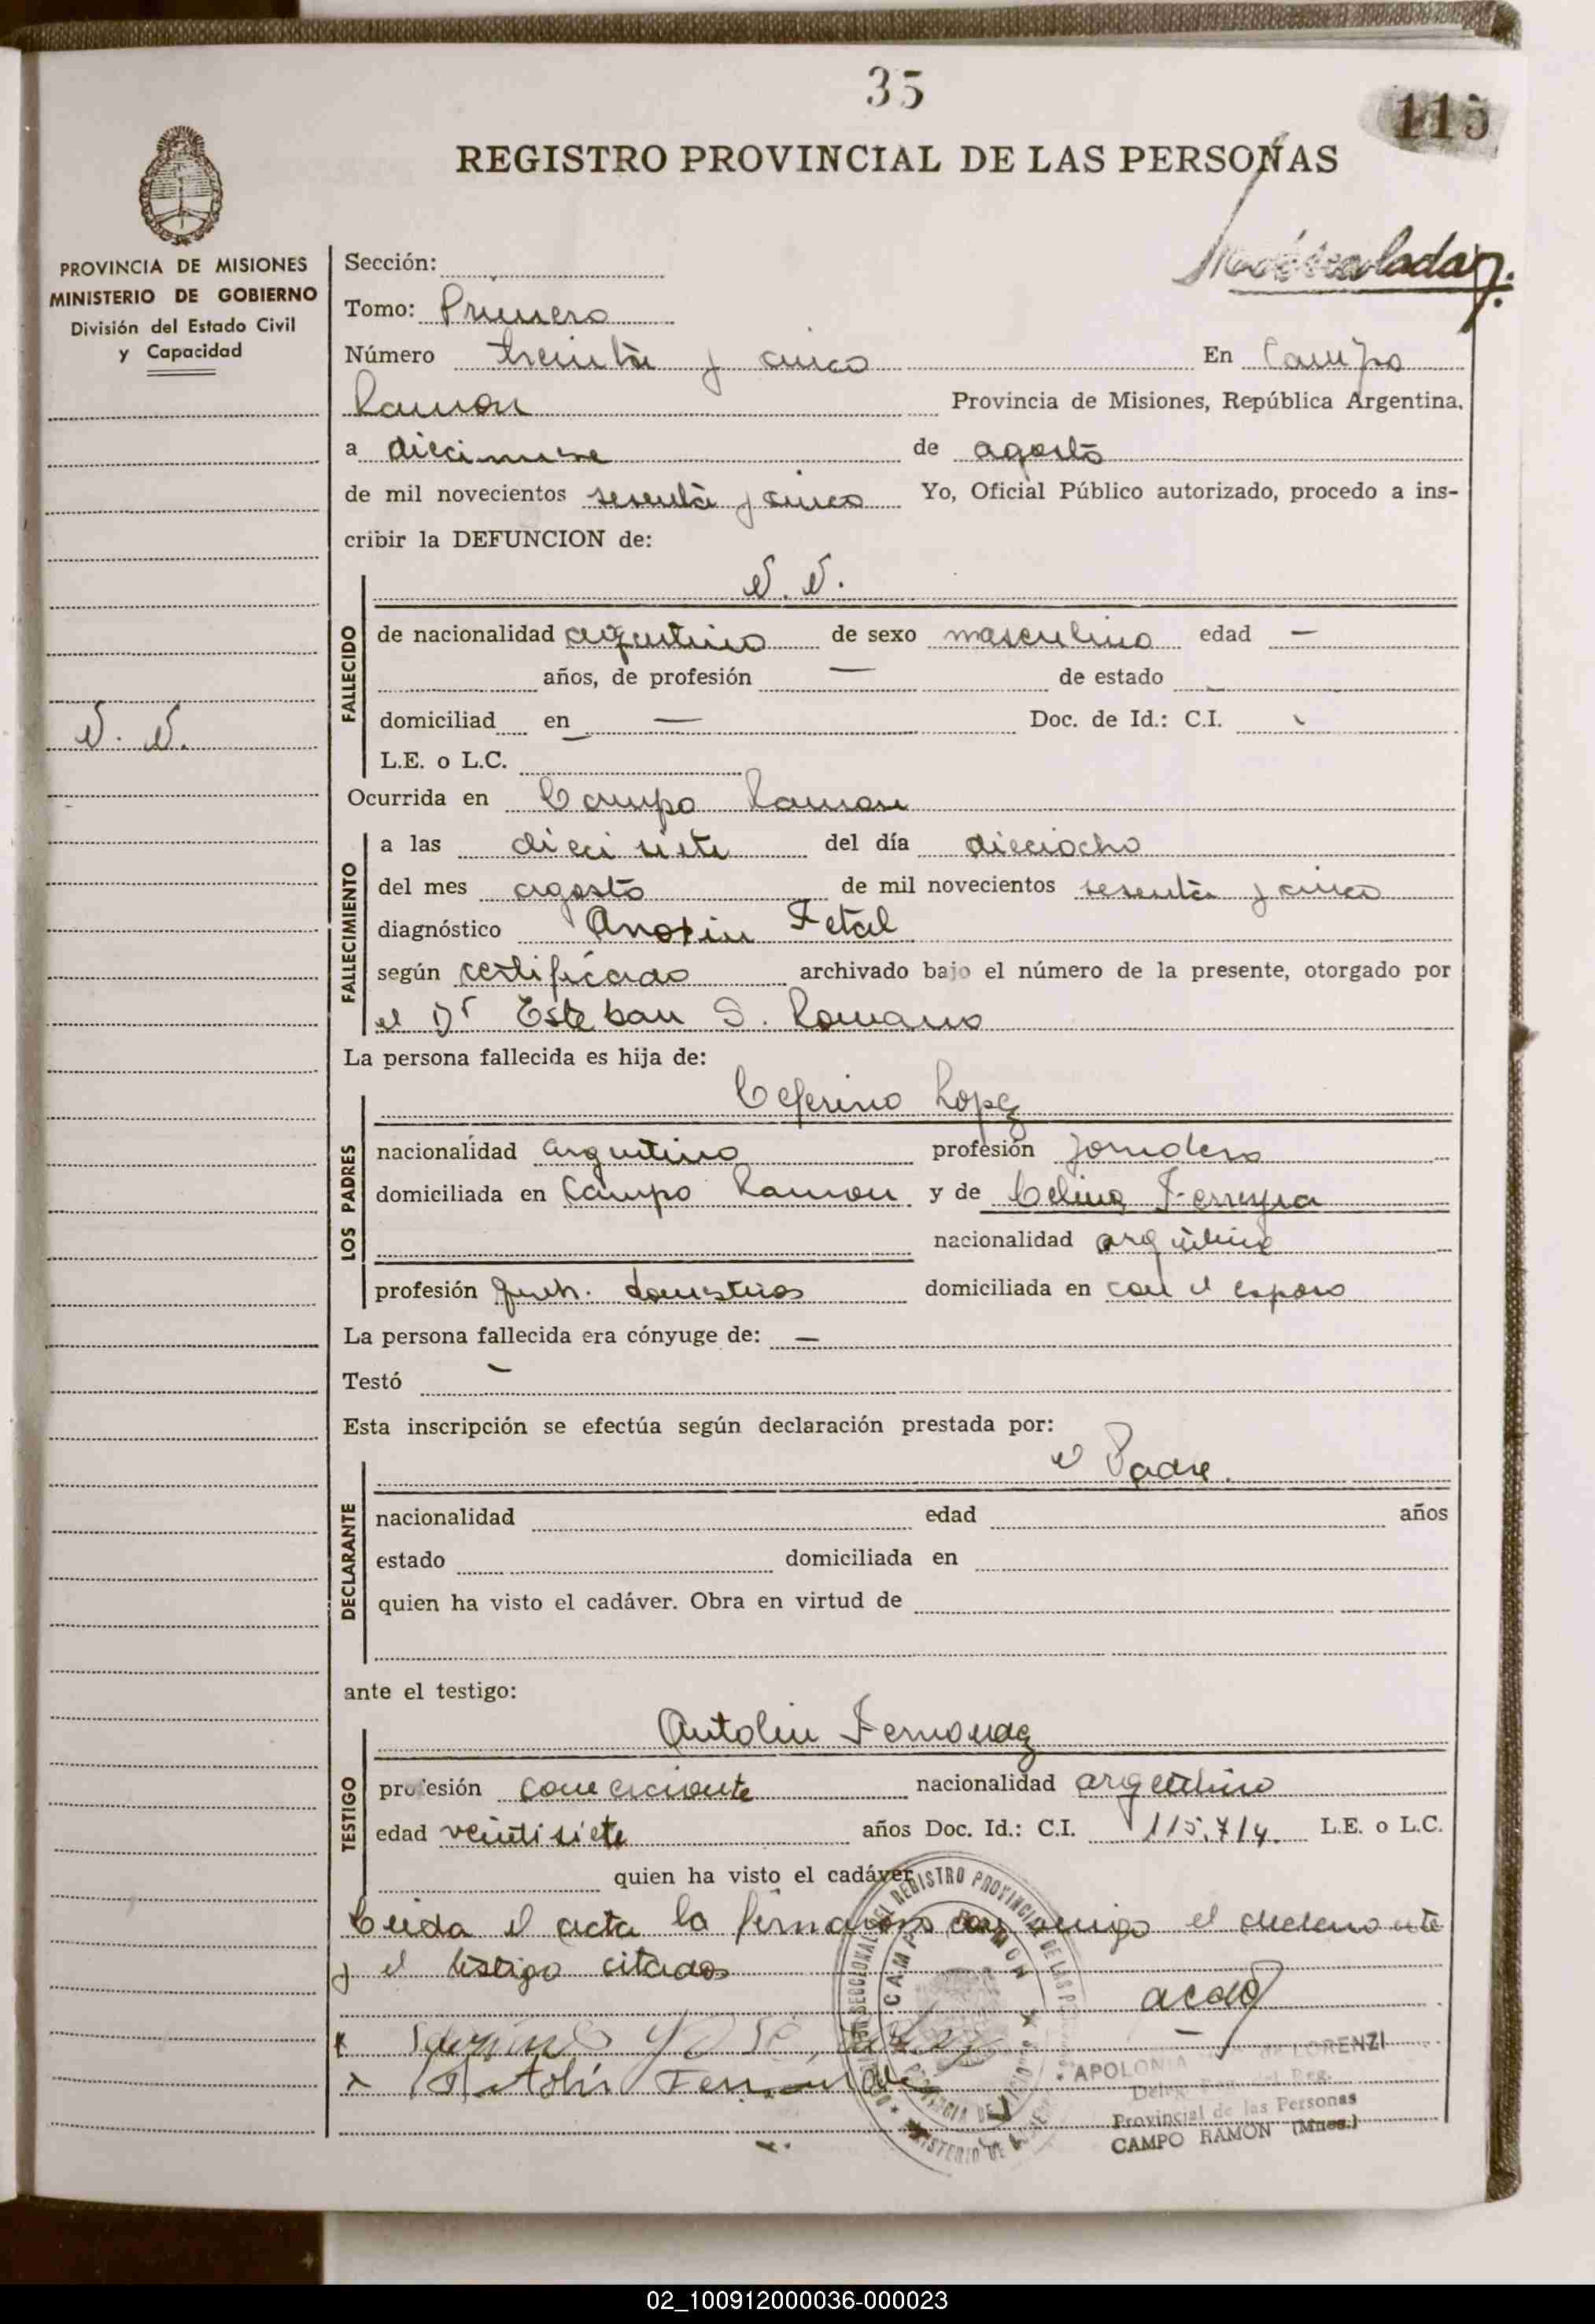 35
115
REGISTRO PROVINCIAL DE LAS PERSONAS
PROVINCIA DE MISIONES
MINISTERIO DE GOBIERNO
División del Estado Civil
y Capacidad
Sección:
Tomo: Primero
Número treinta y cinco En Campo
Ramon Provincia de Misiones, República Argentina,
a diecinueve de agosto
de mil novecientos sesenta y cinco Yo, Oficial Público autorizado, procedo a ins-
cribir la DEFUNCION de:
N. N.
N. N.
FALLECIDO
de nacionalidad argentino de sexo masculino edad —
años, de profesión — de estado
domiciliad en — Doc. de Id.: C.I.
L.E. o L.C.
Ocurrida en Campo Ramon
FALLECIMIENTO
a las dieci siete del día dieciocho
del mes agosto de mil novecientos sesenta y cinco
diagnóstico Anoxia Fetal
según certificado archivado bajo el número de la presente, otorgado por
el Dr Esteban S. Romano
La persona fallecida es hija de:
LOS PADRES
Ceferino Lopez
nacionalidad argentino profesión jornalero
domiciliada en Campo Ramon y de Celina Ferreyra
nacionalidad argentina
profesión domiciliada en con el esposo
La persona fallecida era cónyuge de: —
Testó —
Esta inscripción se efectúa según declaración prestada por:
DECLARANTE
el Padre.
nacionalidad edad años
estado domiciliada en
quien ha visto el cadáver. Obra en virtud de
ante el testigo:
TESTIGO
Antolin Fernandez
profesión comerciante nacionalidad argentino
edad veinti siete años Doc. Id.: C.I. 115.714. L.E. o L.C.
quien ha visto el cadáver
Leida el acta la firmaron conmigo el declarante
y el testigo citados
Antolin Fernandez
APOLONIA de LORENZI
Provincial de las Personas
CAMPO RAMON (Mnes.)
02_100912000036-000023